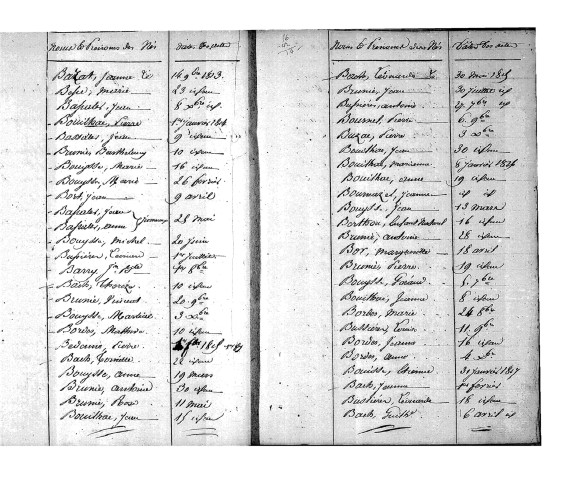 Noms & Prénoms des Nés
Date des actes
Bazat, Jeanne
16 9bre 1813
23 idem
Bapules, Jean
8 xbre id
Bouilhac, Pierre
1er janvier 1814
Bassoules, Jean
9 idem
Brunie, Barthelemy
10 idem
Bouysse, Marie
16 idem
Bouysse, Marie
26 février
Bort, Jean
9 avril
Bapules, Jean
Bapules, anne
Jumeaux
28 mai
Bouysse, Michel
20 juin
Bussiere, Leonard
1er Juillet
Barry, Jn Bte
Bach, Therese
10 idem
Brunie, Vincent
20 9bre
Bouysse, Martine
3 xbre
Bordes, Mathurin
10 idem
Bach, Toinette
22 idem
Bouysse, anne
19 mars
Brunie, antoine
30 idem
Brunie, Rose
11 mai
Bouilhac, Jean
15 idem
Noms & Prénoms des Nés
Dates des actes
Bach, Leonarde
30 Mai 1815
Brunie, Jean
30 juillet id
Bussiere, antoine
27 7bre id
Bournel, Pierre
6 9bre
Bazac, Pierre
3 xbre
Bouilhac, Jean
30 idem
Bouilhac, Marianne
8 janvier 1816
Bouilhac, anne
19 idem
Jeanne
id id
Bouysse, Jean
13 Mars
16 idem
Brunie, antoine
28 idem
Bor, Margueritte
18 avril
Brunie, Pierre
19 idem
Bouysse, Giraud
6 7bre
Bouilhac, Jeanne
8 idem
Bordes, Marie
24 8bre
Bussiere, Louis
11 9bre
Bordes, Jeanne
16 idem
Bordes, anne
4 xbre
Bouisse, Etienne
31 janvier 1817
Bach, Jeanne
1er fevrier
Bussiere, Leonarde
18 idem
Bach, Guilhe
6 avril id